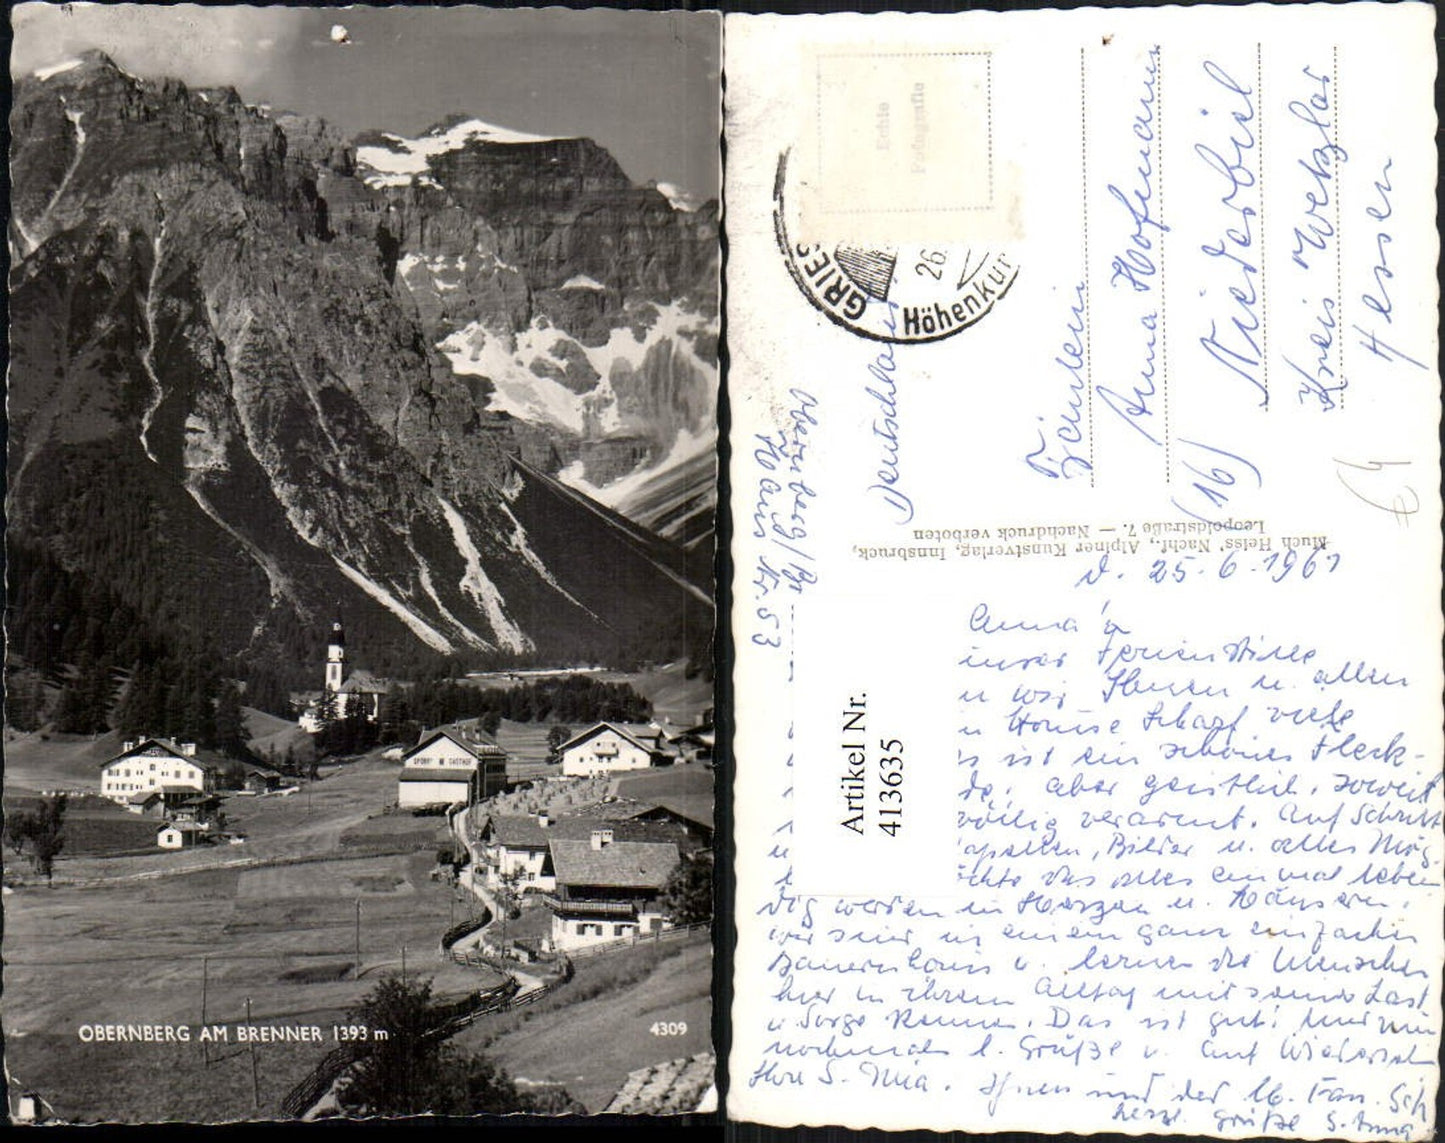 SPORT GASTHOF
OBERNBERG AM BRENNER 1393 m
4309
Echte
Fotografie
GRIES
26.
Höhenkur
Deutschland
Fräulein
Anna Hofmann
(16) Niederbiel
Kreis Wetzlar
Hessen
Obernberg/Br
Haus Nr. 53
Much Heiss' Nachf., Alpiner Kunstverlag, Innsbruck,
Leopoldstraße 7. — Nachdruck verboten
d. 25.6.1961
Anna
unser Ferien
wir Ihnen u. allen
Hause Scharf viele
ist ein schönes Fleck-
aber geistlich, soweit
völlig verarmt. Auf Schritt
apellen, Bilder u. alles Mög-
chte das alles einmal leben
dig werden in Herzen u. Häusern.
wir sind in einem ganz einfachen
Bauernhaus u. lernen die Menschen
hier in ihrem Alltag mit seiner Last
u Sorge kennen. Das ist gut! Und nun
nochmals l. Grüße u. auf Wiedersehn
Ihre S. Mia. Ihnen und der lb. Fam. Sch
herzl. Grüße S. Anna
Artikel Nr.
413635